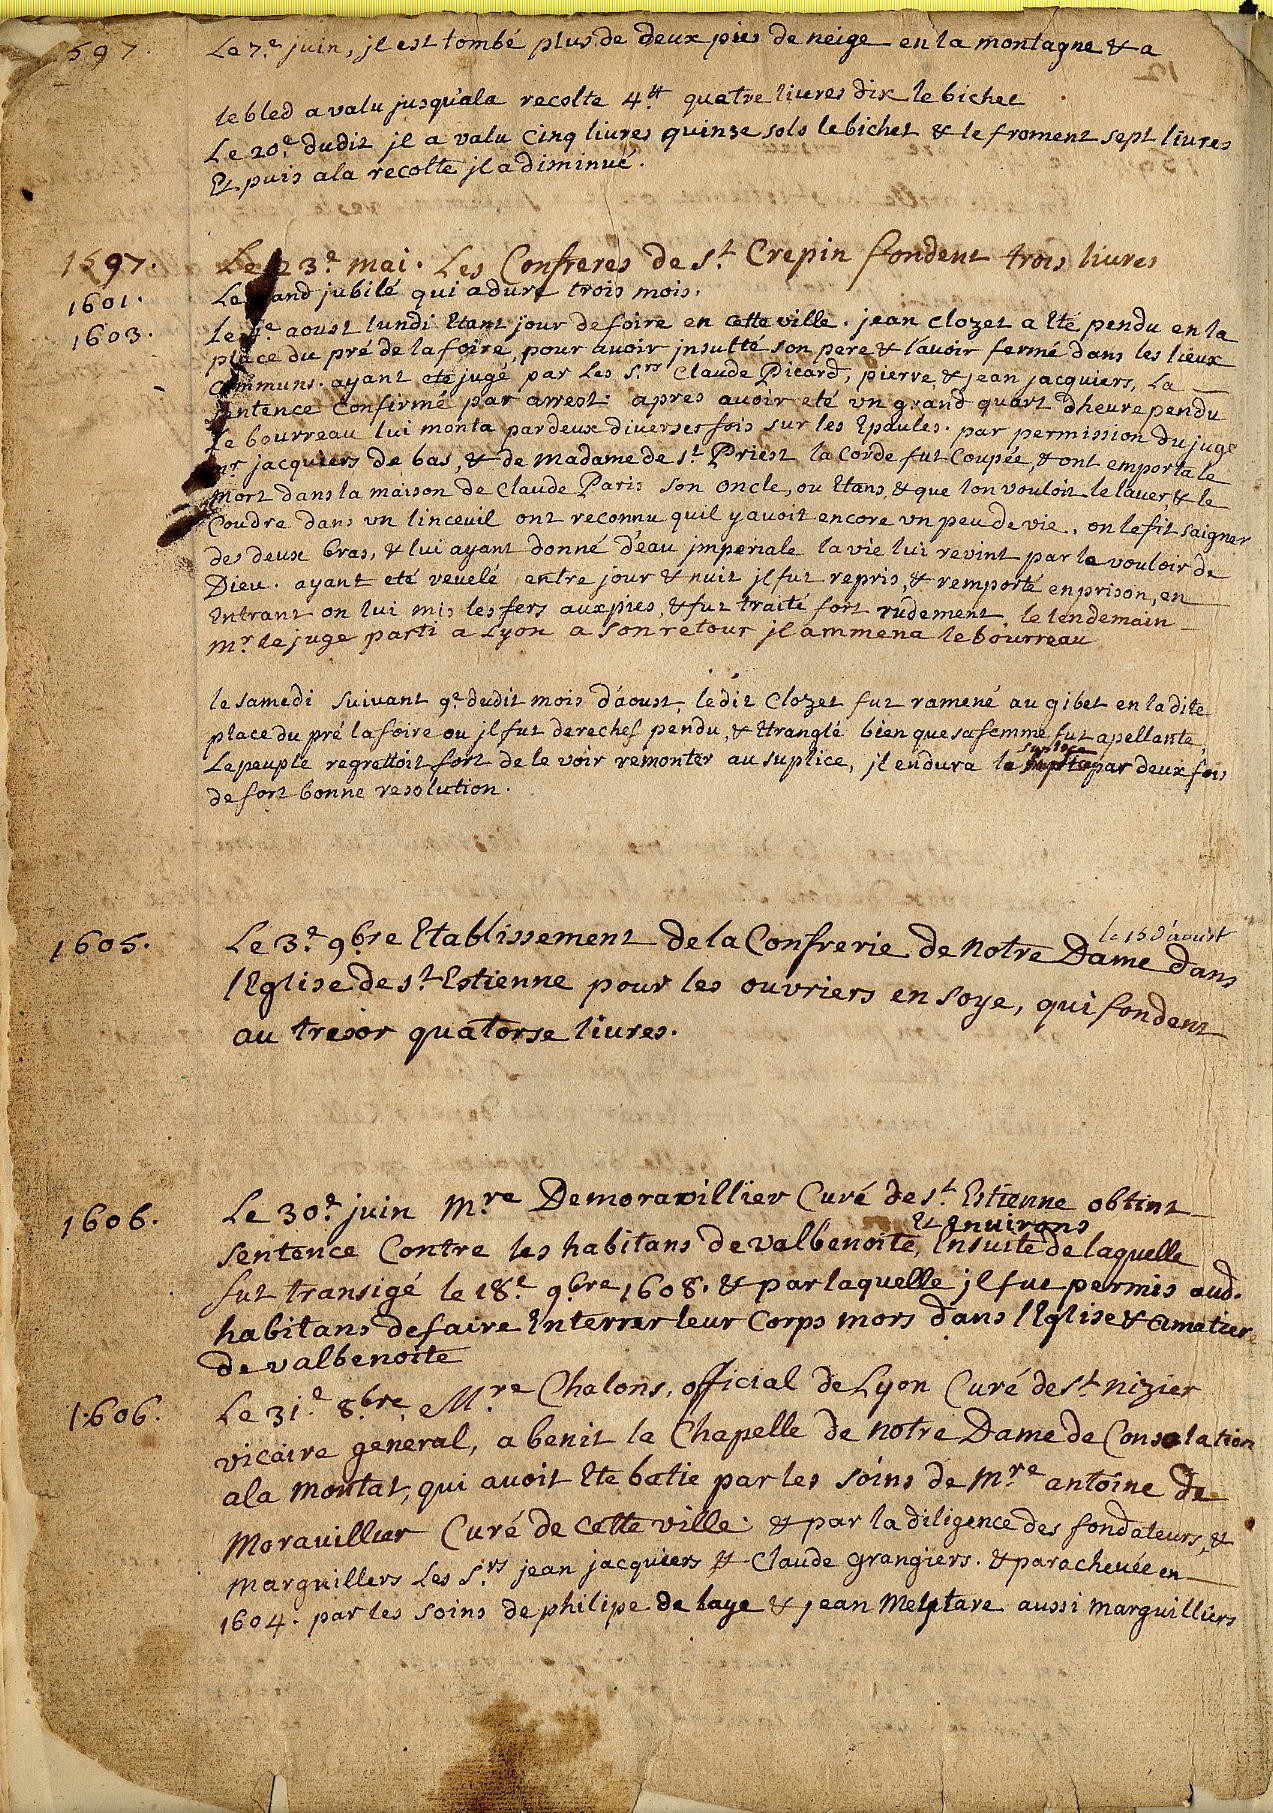 597. Le 7e juin, jl est tombé plus de deux pies de neige en la montagne & a
le bled a valu jusqu'ala recolte 4tt quatre livres dix le bichet
Le 20e dudit jl a valu Cinq livres quinze sols le bichet & le froment sept livres
Et puis ala recolte jl a diminué.
1597. Le 23e mai. Les Confreres de st Crepin fondent trois livres
1601. Le and jubilé qui a duré trois mois.
1603. Le aoust lundi Etant jour de foire en cette ville. jean Clozet a Eté pendu en la
place du pré de la foire, pour avoir jnsulté son pere & l'avoir fermé dans les lieux
Communs. ayant eté jugé par Les Srs Claude Picard, pierre, & jean jacquiers, La
Sentence Confirmé par arrest. apres avoir eté un grand quart d'heure pendu
Le bourreau lui monta par deux diverses fois sur les Epaules. par permission du juge
mr jacquiers de bas, & de madame de st Priest la Corde fut Coupée, & ont emporta le
mort dans la maison de Claude Paris son oncle, ou Etans, & que lon vouloit le laver, & le
Coudre dans un linceuil ont reconnu quil y avoit encore un peu de vie, on le fit saigner
des deux bras, & lui ayant donné d'eau jmperiale la vie lui revint par le vouloir de
Dieu. ayant eté veuelé entre jour & nuit jl fut repris, & remporté en prison, en
Entrant on lui mis les fers aux pies, & fut traité fort rudement. le lendemain
mr le juge parti a Lyon a son retour jl ammena le bourreau
le samedi suivant 9e dudit mois d'aoust, ledit Clozet fut ramené au gibet en la dite
place du pré la foire ou jl fut derechef pendu, & Etranglé bien que sa femme fut apellante,
Le peuple regrettoit fort de le voir remonter au suplice, jl endura le suplice par deux fois
de fort bonne resolution.
le 15 d'aoust
1605. Le 3e 9bre Etablissement de la Confrerie de notre Dame dans
l'Eglise de st Estienne pour les ouvriers en soye, qui fondent
au tresor quatorse livres.
1606. Le 30e juin Mre Demoravillier Curé de st Estienne obtint
Et environs
sentence Contre les habitans de valbenoite, Ensuite de laquelle
fut transigé le 18e 9bre 1608. & par laquelle jl fut permis aud.
habitans de faire Enterrer leur Corps mors dans l'Eglise & Cimetier
de valbenoite
1606. Le 31e 8bre, Mre Chalons, official de Lyon Curé de st nizier
vicaire general, a benit la Chapelle de notre Dame de Consolation
ala montat, qui avoit Eté batie par les soins de Mre antoine de
Moravillier Curé de cette ville. & par la diligence des fondateurs, &
marguillers Les Srs jean jacquiers & Claude grangiers. & parachevée en
1604. par les soins de philipe de laye & jean Melstare aussi marguilliers